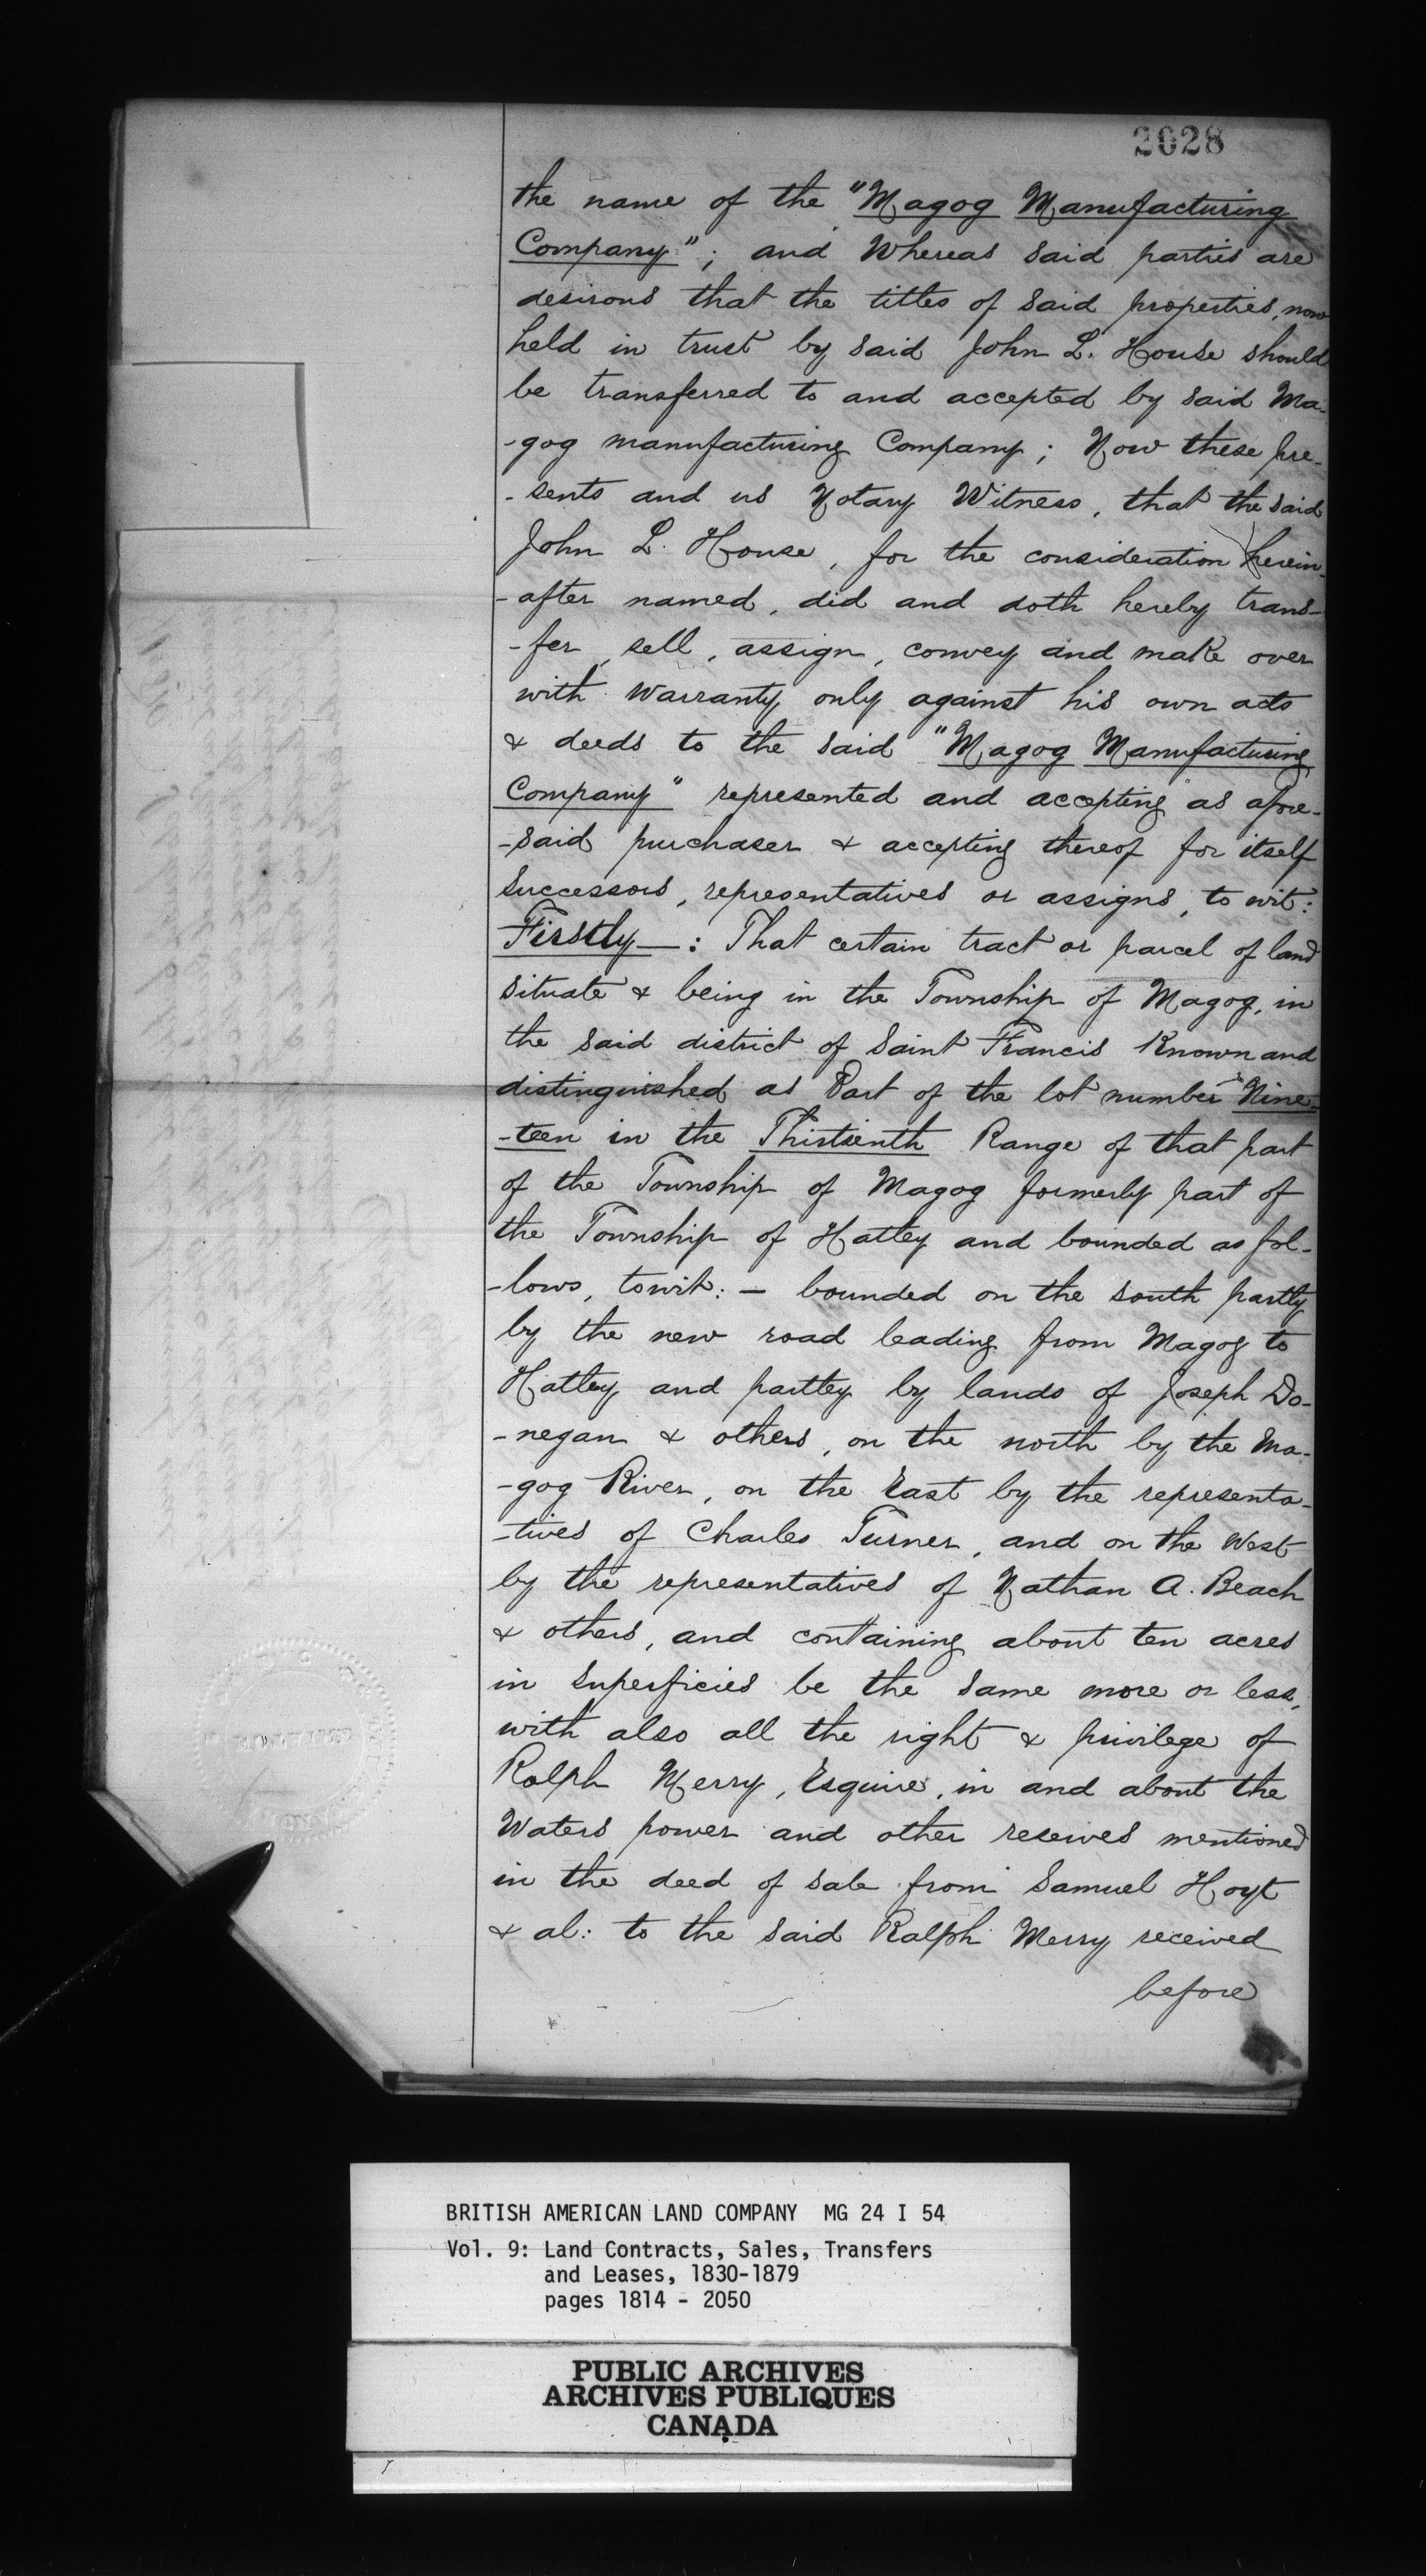 2028
the name of the "Magog Manufacturing
Company"; and Whereas said parties are
desirous that the titles of said properties, now
held in trust by said John L. House should
be transferred to and accepted by said Ma-
-gog manufacturing Company; Now these pre-
-sents and us Notary Witness, that the said
John L. House, for the consideration herein-
-after named, did and doth hereby trans-
-fer, sell, assign, convey and make over
with warranty only against his own acts
& deeds to the said "Magog Manufacturing
Company" represented and accepting as afore-
-said purchaser & accepting thereof for itself
successors, representatives or assigns, to wit:
Firstly—: That certain tract or parcel of land
situate & being in the Township of Magog, in
the said district of Saint Francis Known and
distinguished as Part of the lot number Nine-
-teen in the Thirteenth Range of that part
of the Township of Magog formerly part of
the Township of Hatley and bounded as fol-
-lows, towit: — bounded on the south partly
by the new road leading from Magog to
Hatley and partley by lands of Joseph Do-
-negan & others, on the north by the Ma-
-gog River, on the East by the representa-
-tives of Charles Turner, and on the West
by the representatives of Nathan A. Beach
& others, and containing about ten acres
in superficies be the same more or less,
with also all the right & privilege of
Ralph Merry, Esquire, in and about the
Waters power and other reserves mentioned
in the deed of sale from Samuel Hoyt
& al: to the said Ralph Merry received
before
BRITISH AMERICAN LAND COMPANY MG 24 I 54
Vol. 9: Land Contracts, Sales, Transfers
and Leases, 1830-1879
pages 1814 - 2050
PUBLIC ARCHIVES
ARCHIVES PUBLIQUES
CANADA